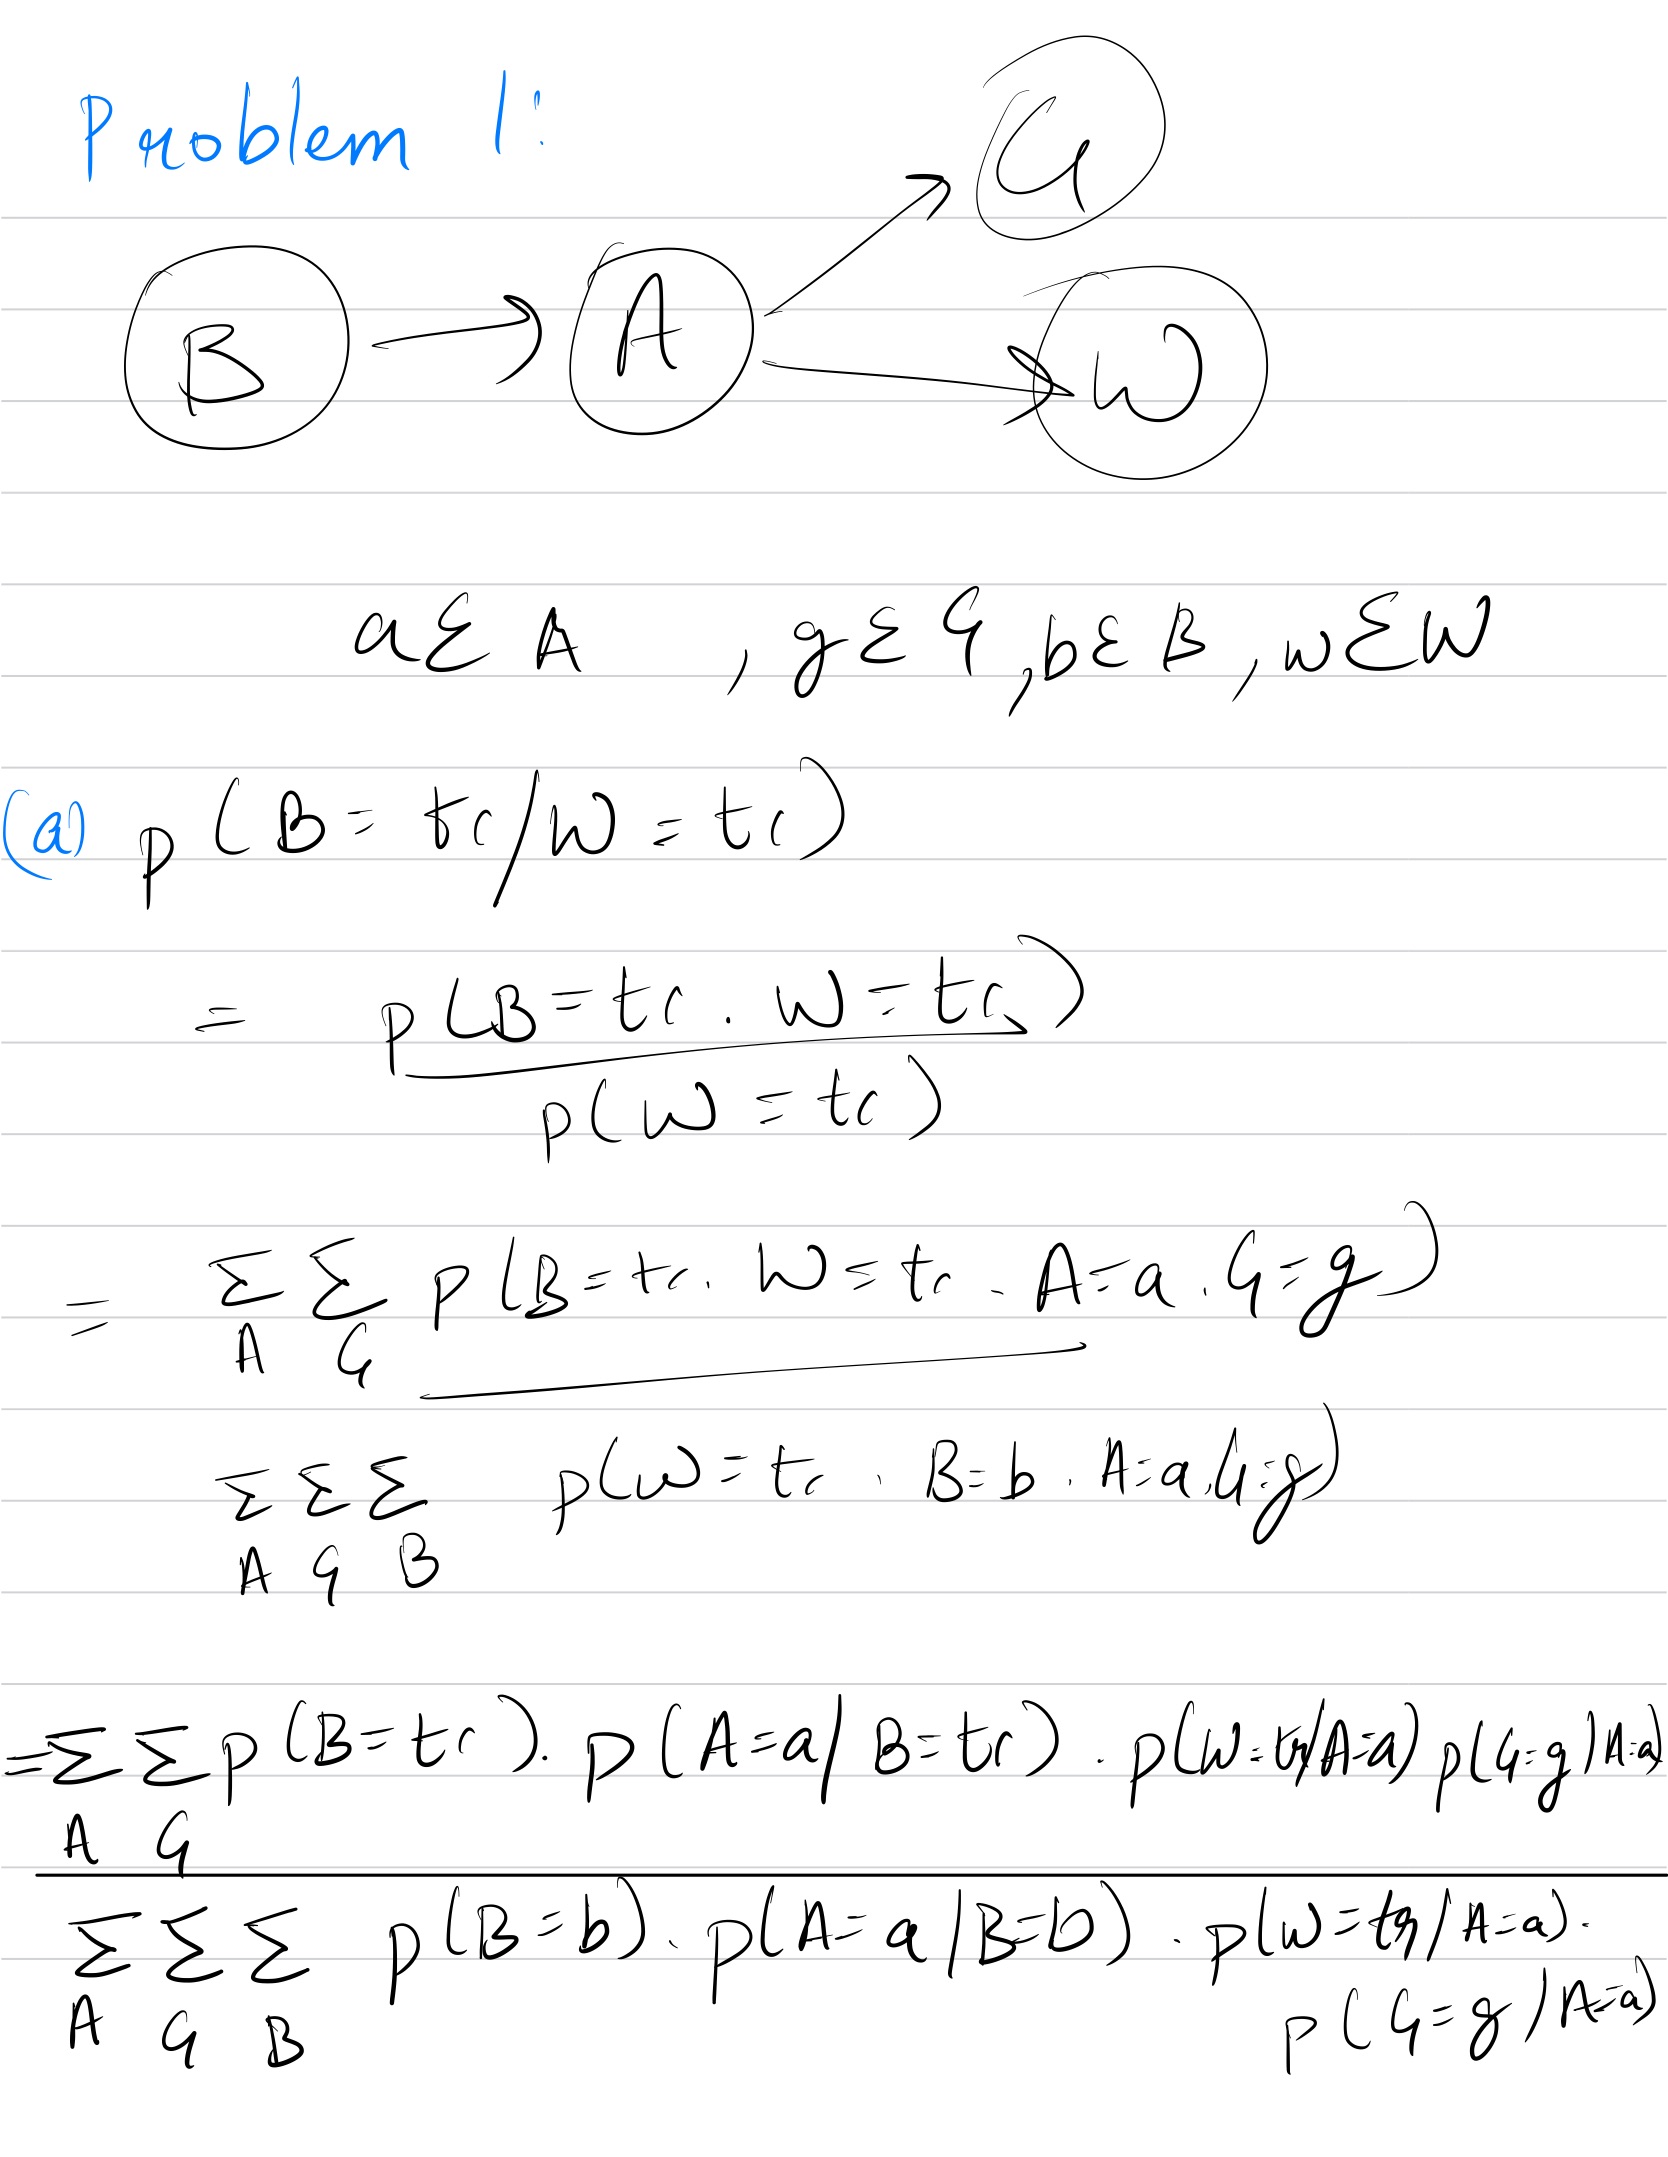 Problem 1:
G
B A W
a Ɛ A , g Ɛ G , b Ɛ B , w Ɛ W
(a) p(B = tr / W = tr)
= p(B = tr . W = tr)
p(W = tr)
= Σ Σ p(B = tr . W = tr . A = a . G = g)
A G
Σ Σ Σ p(W = tr . B = b . A = a . G = g)
A G B
= Σ Σ p(B = tr) . p(A = a / B = tr) . p(W = tr / A = a) p(G = g / A = a)
A G
Σ Σ Σ p(B = b) . p(A = a / B = b) . p(W = tr / A = a) .
A G B p(G = g / A = a)